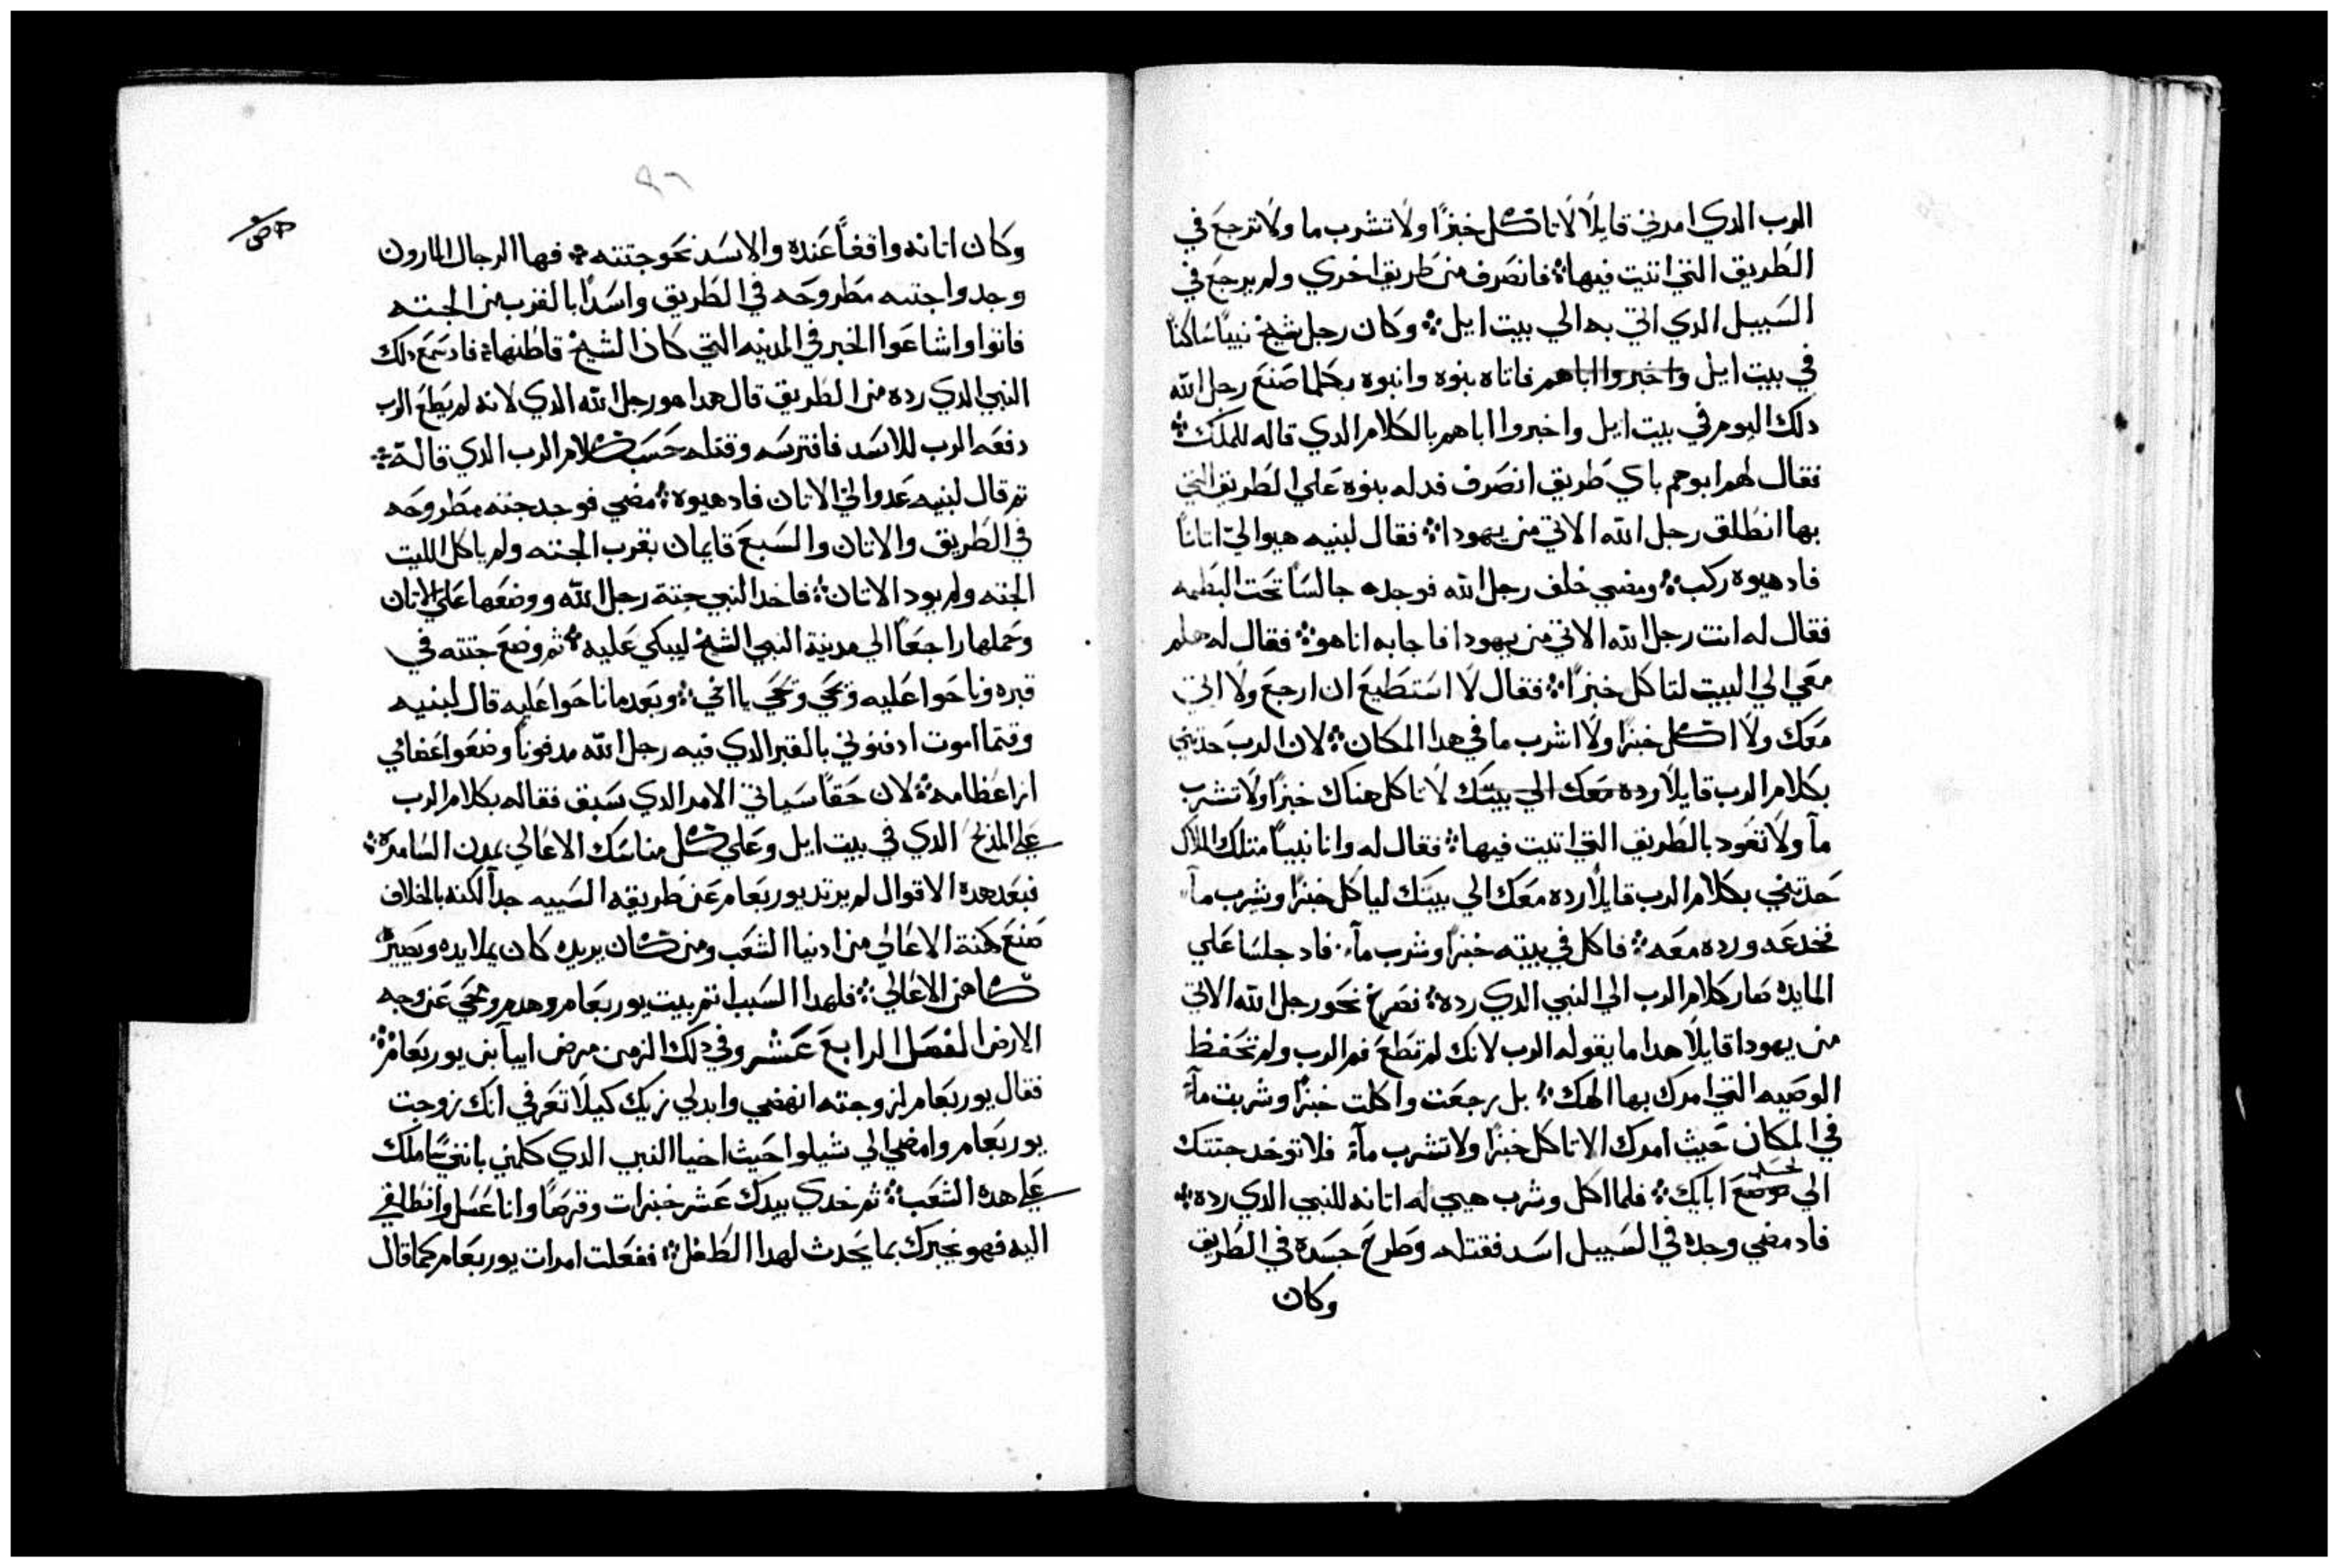 الرب الدي امرني قايلًا لا تاكل خبزًا ولا تشرب ما ولا ترجع في
الطريق التي اتيت فيها ؞ فانصرف من طريق اخري ولم يرجع في
السبيل الدي اتي به الي بيت ايل ؞ وكان رجل شيخ نبيًا ساكنًا
في بيت ايل واخبروا اباهم فاتاه بنوه وانبوه بكلما صنع رجل الله
دلك اليوم في بيت ايل واخبروا اباهم بالكلام الدي قاله للملك ؞
فقال لهم ابوهم باي طريق انصرف فدله بنوه علي الطريق التي
بها انطلق رجل الله الاتي من يهودا ؞ فقال لبنيه هيوا لي اتانًا
فاد هيوه ركب ؞ ومضي خلف رجل الله فوجده جالسًا تحت البطمه
فقال له انت رجل الله الاتي من يهودا فاجابه انا هو ؞ فقال له هلم
معي الي البيت لتاكل خبزًا ؞ فقال لا استطيع ان ارجع ولا اتي
معك ولا اكل خبزًا ولا اشرب ما في هدا المكان ؞ لان الرب حدثني
بكلام الرب قايلًا رده معك الي بيتك لا تاكل هناك خبزًا ولا تشرب
مآ ولا تعود بالطريق التي اتيت فيها ؞ فقال له وانا نبيًا متلك الملاك
حدتني بكلام الرب قايلًا رده معك الي بيتك لياكل خبزًا ويشرب مآ
فخدعه ورده معه ؞ فاكل في بيته خبزًا وشرب مآ ؞ فاد جلسا علي
المايده صار كلام الرب الي النبي الدي رده ؞ فصرخ نحو رجل الله الاتي
من يهودا قايلًا هدا ما يقوله الرب لانك لم تطع فم الرب ولم تحفظ
الوصيه التي امرك بها الهك ؞ بل رجعت واكلت خبزًا وشربت مآ
في المكان حيث امرك الا تاكل خبزًا ولا تشرب مآ فلا توخد جتتك
الي موضع ابايك ؞ فلما اكل وشرب هيي له اتانه للنبي الدي رده ؞
فاد مضي وجده في السبيل اسد فقتله وطرح جسده في الطريق
وكان
٩٦
وكان اتانه واقفًا عنده والاسد نحو جتته ؞ فها الرجال المارون
وجدوا جتته مطروحه في الطريق واسدًا بالقرب من الجته
فاتوا واشاعوا الخبر في المدينه التي كان الشيخ قاطنها ؞ فاد سمع دلك
النبي الدي رده من الطريق قال هدا هو رجل الله الدي لانه لم يطع الرب
دفعه الرب للاسد فافترسه وقتله حسب كلام الرب الدي قاله ؞
تم قال لبنيه عدوا لي الاتان فاد هيوه ؞ مضي فوجد جتته مطروحه
في الطريق والاتان والسبع قايمان بقرب الجته ولم ياكل الليت
الجته ولم يود الاتان ؞ فاخد النبي جتة رجل الله ووضعها علي الاتان
وحملها راجعًا الي مدينة النبي الشيخ ليبكي عليه ؞ تم وضع جتته في
قبره وناحوا عليه وَيحي وَيحي يا اخي ؞ وبعد ما ناحوا عليه قال لبنيه
وقتما اموت ادفنوني بالقبر الدي فيه رجل الله مدفونًا وضعوا عضامي
ازا عظامه ؞ لان حقًا سياتي الامر الدي سبق فقاله بكلام الرب
علي المدبح الدي في بيت ايل وعلي كل مناسك الاعالي بمدن السامرة ؞
فبعد هده الاقوال لم يرتد يوربعام عن طريقه السييه جدًا لكنه بالخلاف
صنع كهنة الاعالي من ادنيا الشعب ومن كان يريد كان يملا يده ويصير
كاهن الاعالي ؞ فلهدا السبب اتم بيت يوربعام وهدم ومحي عن وجه
الارض الفصل الرابع عشر وفي دلك الزمن مرض ابيا بن يوربعام ؞
فقال يوربعام لزوجته انهضي وابدلي زيك كيلا تعرفي انك زوجت
يوربعام وامضي الي شيلوا حيث اخيا النبي الدي كلمني بانني ساملك
علي هده الشعب ؞ تم خدي بيدك عشر خبزات وقرصًا وانا عسل وانطلقي
اليه فهو يخبرك بما يحدث لهدا الطفل ؞ ففعلت امرات يوربعام كما قال